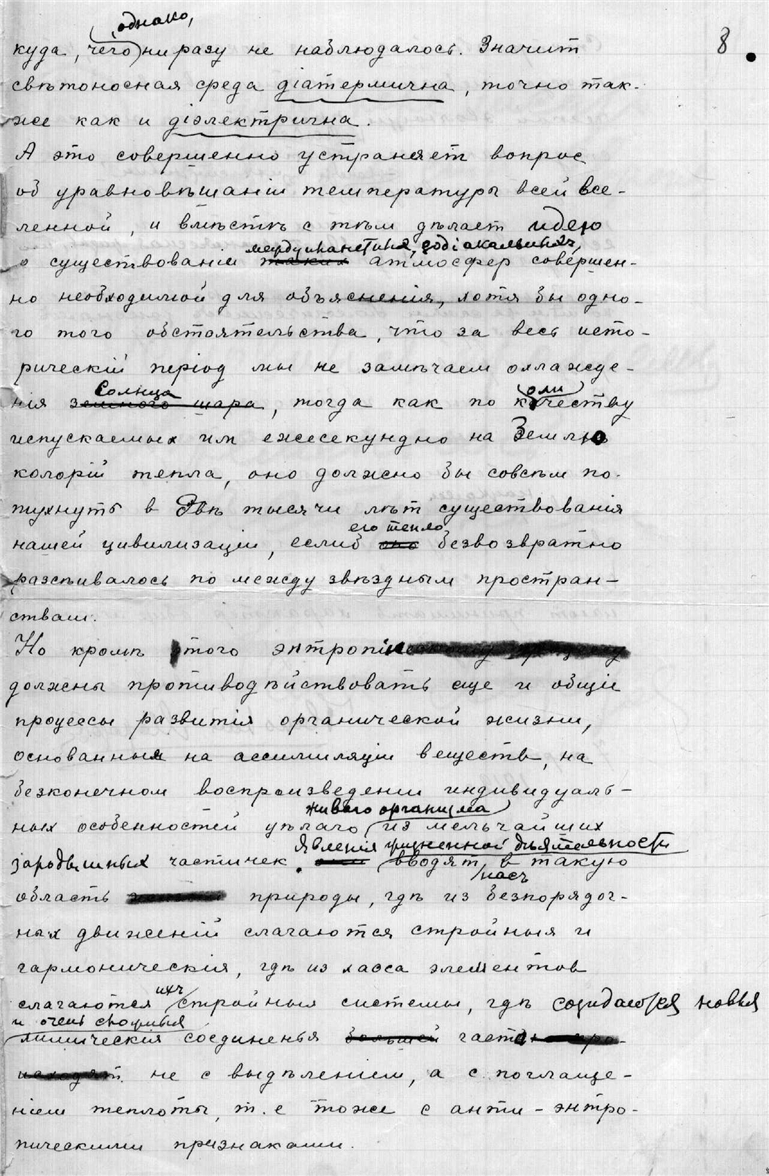 8.
однако,
куда, чего ни разу не наблюдалось. Значит
свѣтоносная среда діатермична, точно так-
же как и діэлектрична.
А это совершенно устраняет вопрос
об уравновѣшаніи температуры всей все-
ленной, и вмѣстѣ с тѣм дѣлает идею
междупланетных, зодіакальных
о существованіи таких атмосфер совершен-
но необходимой для объясненія, хотя бы одно-
го того обстоятельства, что за весь исто-
рическій період мы не замѣчаем охлажде-
Солнца оли
нія земного шара, тогда как по кочеству
испускаемых им ежесекундно на Землю
колорій тепла, оно должно бы совсѣм по-
тухнуть в двѣ тысячи лѣт существованія
его тепло
нашей цивилизаціи, еслиб оно безвозвратно
разсѣивалось по между звѣздным простран-
ствам.
Но кромѣ того энтропіи
должны противодѣйствовать еще и общіе
процессы развитія органической жизни,
основанныя на ассимиляціи веществ, на
безконечном воспроизведеніи индивидуаль-
живого организма
ных особенностей цѣлаго из мельчайших
Явленія жизненной дѣятельности
зародышных частичек. вводят в такую
насъ
область природы, гдѣ из безпорядоч-
ных движеній слагаются стройныя и
гармоническія, гдѣ из хаоса элементов
ихъ
слагаются стройныя системы, гдѣ созидаются новыя
и очень сложныя
химическія соединенья большей часто
не с выдѣленіем, а с поглаще-
ніем теплоты, т. е тоже с анти-энтро-
пическими признаками.